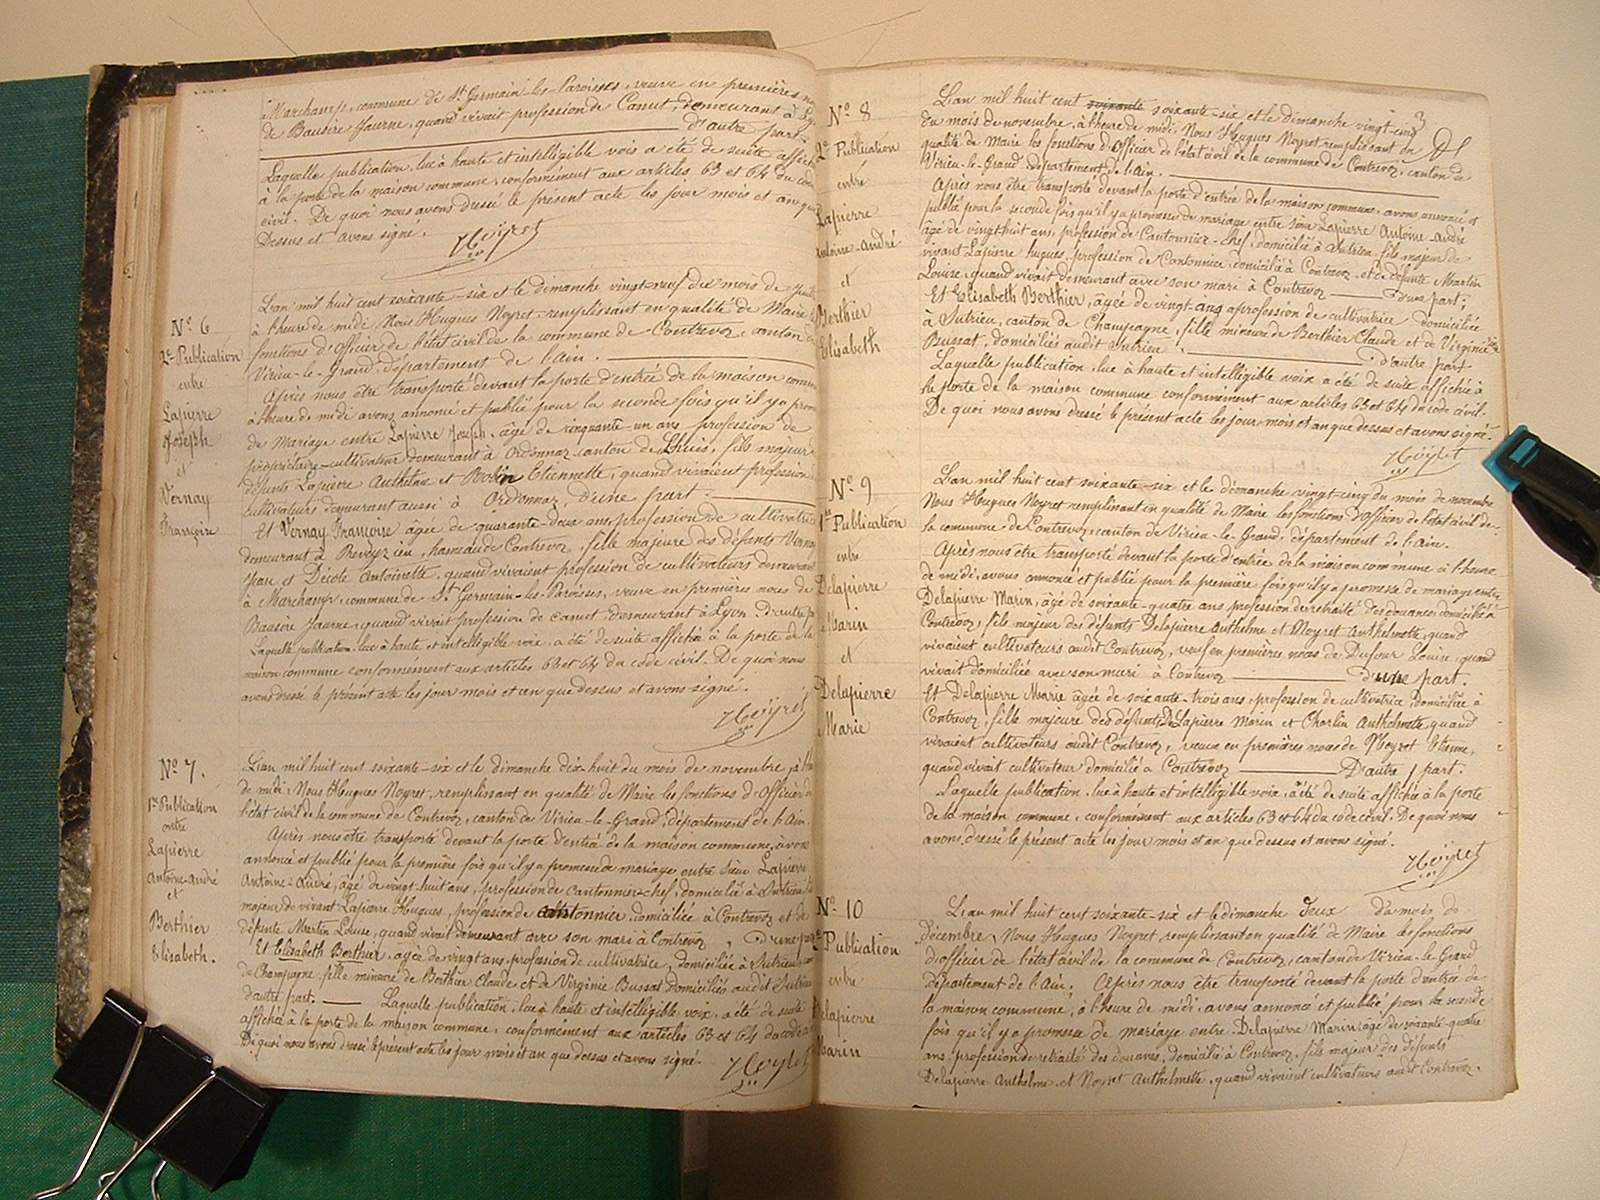 Marchamp, commune de St Germain-les-Paroisses, veuve en premières
de Bausire Jaurne, quand vivait profession de Canut, demeurant à
d'autre part.
Laquelle publication, lue à haute et intelligible voix a été de suite affich
à la porte de la maison commune, conformément aux articles 63 et 64 du code
civil. De quoi nous avons dressé le présent acte les jour mois et an que
Dessus et avons signé.
Neyret
N° 6
2e Publication
entre
Lapierre
Joseph
et
Vernay
Françoise
L'an mil huit cent soixante-six et le dimanche vingt-neuf du mois de
à l'heure de midi Nous Hugues Neyret remplissant en qualité de Maire les
fonctions d'Officier de l'état civil de la commune de Contrevoz, canton de
Virieu-le-Grand, département de l'Ain.
Après nous être transporté devant la porte d'entrée de la maison comm
à l'heure de midi avons annoncé et publié pour la seconde fois qu'il y a prom
de Mariage entre Lapierre Joseph, âgé de cinquante-un ans profession de
propriétaire-cultivateur demeurant à Ordonnaz canton de Lhuis, fils majeur
défunts Lapierre Anthelme et Etiennette, quand vivaient profession
cultivateurs demeurant aussi à Ordonnaz, d'une part.
Et Vernay Françoise âgée de quarante-deux ans profession de cultivatrice
demeurant à hameau de Contrevoz, fille majeure des défunts Vernay
Jean et Décote Antoinette, quand vivaient profession de cultivateurs demeurant
à Marchamp, commune de St Germain-les-Paroisses, veuve en premières noces de
Bausire Jaurne, quand vivait profession de canut, demeurant à Lyon. D'autre pa
Laquelle publication, lue à haute et intelligible voix, a été de suite affichée à la porte de la
maison commune conformément aux articles 63 et 64 du code civil. De quoi nous
avons dressé le présent acte les jour mois et an que dessus et avons signé.
Neyret
N° 7.
1re Publication
entre
Lapierre
Antoine-André
et
Berthier
Elisabeth.
L'an mil huit cent soixante-six et le dimanche dix-huit du mois de novembre, à l'h
de midi; Nous Hugues Neyret, remplissant en qualité de Maire les fonctions d'Officier de
l'état civil de la commune de Contrevoz, canton de Virieu-le-Grand, département de l'Ain.
Après nous être transporté devant la porte d'entrée de la maison commune, avons
annoncé et publié pour la première fois qu'il y a promesse de mariage entre sieur Lapierre
Antoine-André, âgé de vingt-huit ans, profession de Cantonnier-chef, domicilié à Sutrieu, fils
majeur de vivant Lapierre Hugues, profession de cantonnier, domicilié à Contrevoz et de
défunte Martin Louise, quand vivait demeurant avec son mari à Contrevoz, D'une part
Et Elisabeth Berthier, âgée de vingt ans, profession de cultivatrice, domiciliée à Sutrieu, can
de Champagne, fille mineure de Berthier Claude et de Virginie Bussat domiciliés audit Sutrieu
d'autre part. Laquelle publication, lue à haute et intelligible voix, a été de suite
affichée à la porte de la maison commune, conformément aux articles 63 et 64 du code
De quoi nous avons dressé le présent acte les jour mois et an que dessus et avons signé.
Neyret
N° 8
2e Publication
entre
Lapierre
Antoine-André
et
Berthier
Elisabeth
3
L'an mil huit cent soixante soixante-six et le Dimanche vingt-cinq
du mois de novembre, à l'heure de midi. Nous Hugues Neyret remplissant en
qualité de Maire les fonctions d'Officier de l'état civil de la commune de Contrevoz, canton de
Virieu-le-Grand, département de l'Ain.
Après nous être transporté devant la porte d'entrée de la maison commune, avons annoncé et
publié pour la seconde fois qu'il y a promesse de mariage entre sieur Lapierre Antoine-André
âgé de vingt huit ans, profession de Cantonnier-chef, domicilié à Sutrieu, fils majeur de
vivant Lapierre Hugues, profession de Cantonnier, domicilié à Contrevoz, et de défunte Martin
Louise, quand vivait demeurant avec son mari à Contrevoz d'une part;
Et Elisabeth Berthier, âgée de vingt ans, profession de cultivatrice domiciliée
à Sutrieu, canton de Champagne, fille mineure de Berthier Claude et de Virginie
Bussat, domiciliés audit Sutrieu. d'autre part.
Laquelle publication, lue à haute et intelligible voix a été de suite affichée à
la porte de la maison commune conformément aux articles 63 et 64 du code civil.
De quoi nous avons dressé le présent acte les jour mois et an que dessus et avons signé.
Neyret
N° 9
1re Publication
entre
Delapierre
Marin
et
Delapierre
Marie
L'an mil huit cent soixante-six et le dimanche vingt-cinq du mois de novembre
Nous Hugues Neyret remplissant en qualité de Maire les fonctions d'Officier de l'état civil de
la commune de Contrevoz, canton de Virieu-le-Grand, département de l'Ain.
Après nous être transporté devant la porte d'entrée de la maison commune à l'heure
de midi, avons annoncé et publié pour la première fois qu'il y a promesse de mariage entre
Delapierre Marin, âgé de soixante-quatre ans profession de retraité des douanes domicilié à
Contrevoz, fils majeur des défunts Delapierre Anthelme et Neyret Anthelmette, quand
vivaient cultivateurs audit Contrevoz, veuf en premières noces de Dufour Louise, quand
vivait domiciliée avec son mari à Contrevoz d'une part.
Et Delapierre Marie âgée de soixante-trois ans, profession de cultivatrice, domiciliée à
Contrevoz, fille majeure des défunts Delapierre Marin et Charlin Anthelmette quand
vivaient cultivateurs audit Contrevoz, veuve en premières noces de Neyret Etienne,
quand vivait cultivateur domicilié à Contrevoz D'autre part.
Laquelle publication, lue à haute et intelligible voix, a été de suite affichée à la porte
de la maison commune, conformément aux articles 63 et 64 du code civil. De quoi nous
avons dressé le présent acte les jour mois et an que dessus et avons signé.
Neyret
N° 10
2e Publication
entre
Delapierre
Marin
L'an mil huit cent soixante-six et le dimanche deux du mois de
Décembre, Nous Hugues Neyret, remplissant en qualité de Maire les fonctions
d'officier de l'état civil de la commune de Contrevoz, canton de Virieu-le-Grand
département de l'Ain; Après nous être transporté devant la porte d'entrée de
la maison commune, à l'heure de midi, avons annoncé et publié pour la seconde
fois qu'il y a promesse de mariage entre Delapierre Marin, âgé de soixante-quatre
ans, profession de retraité des douanes, domicilié à Contrevoz, fils majeur des défunts
Delapierre Anthelme et Neyret Anthelmette, quand vivaient cultivateurs audit Contrevoz.